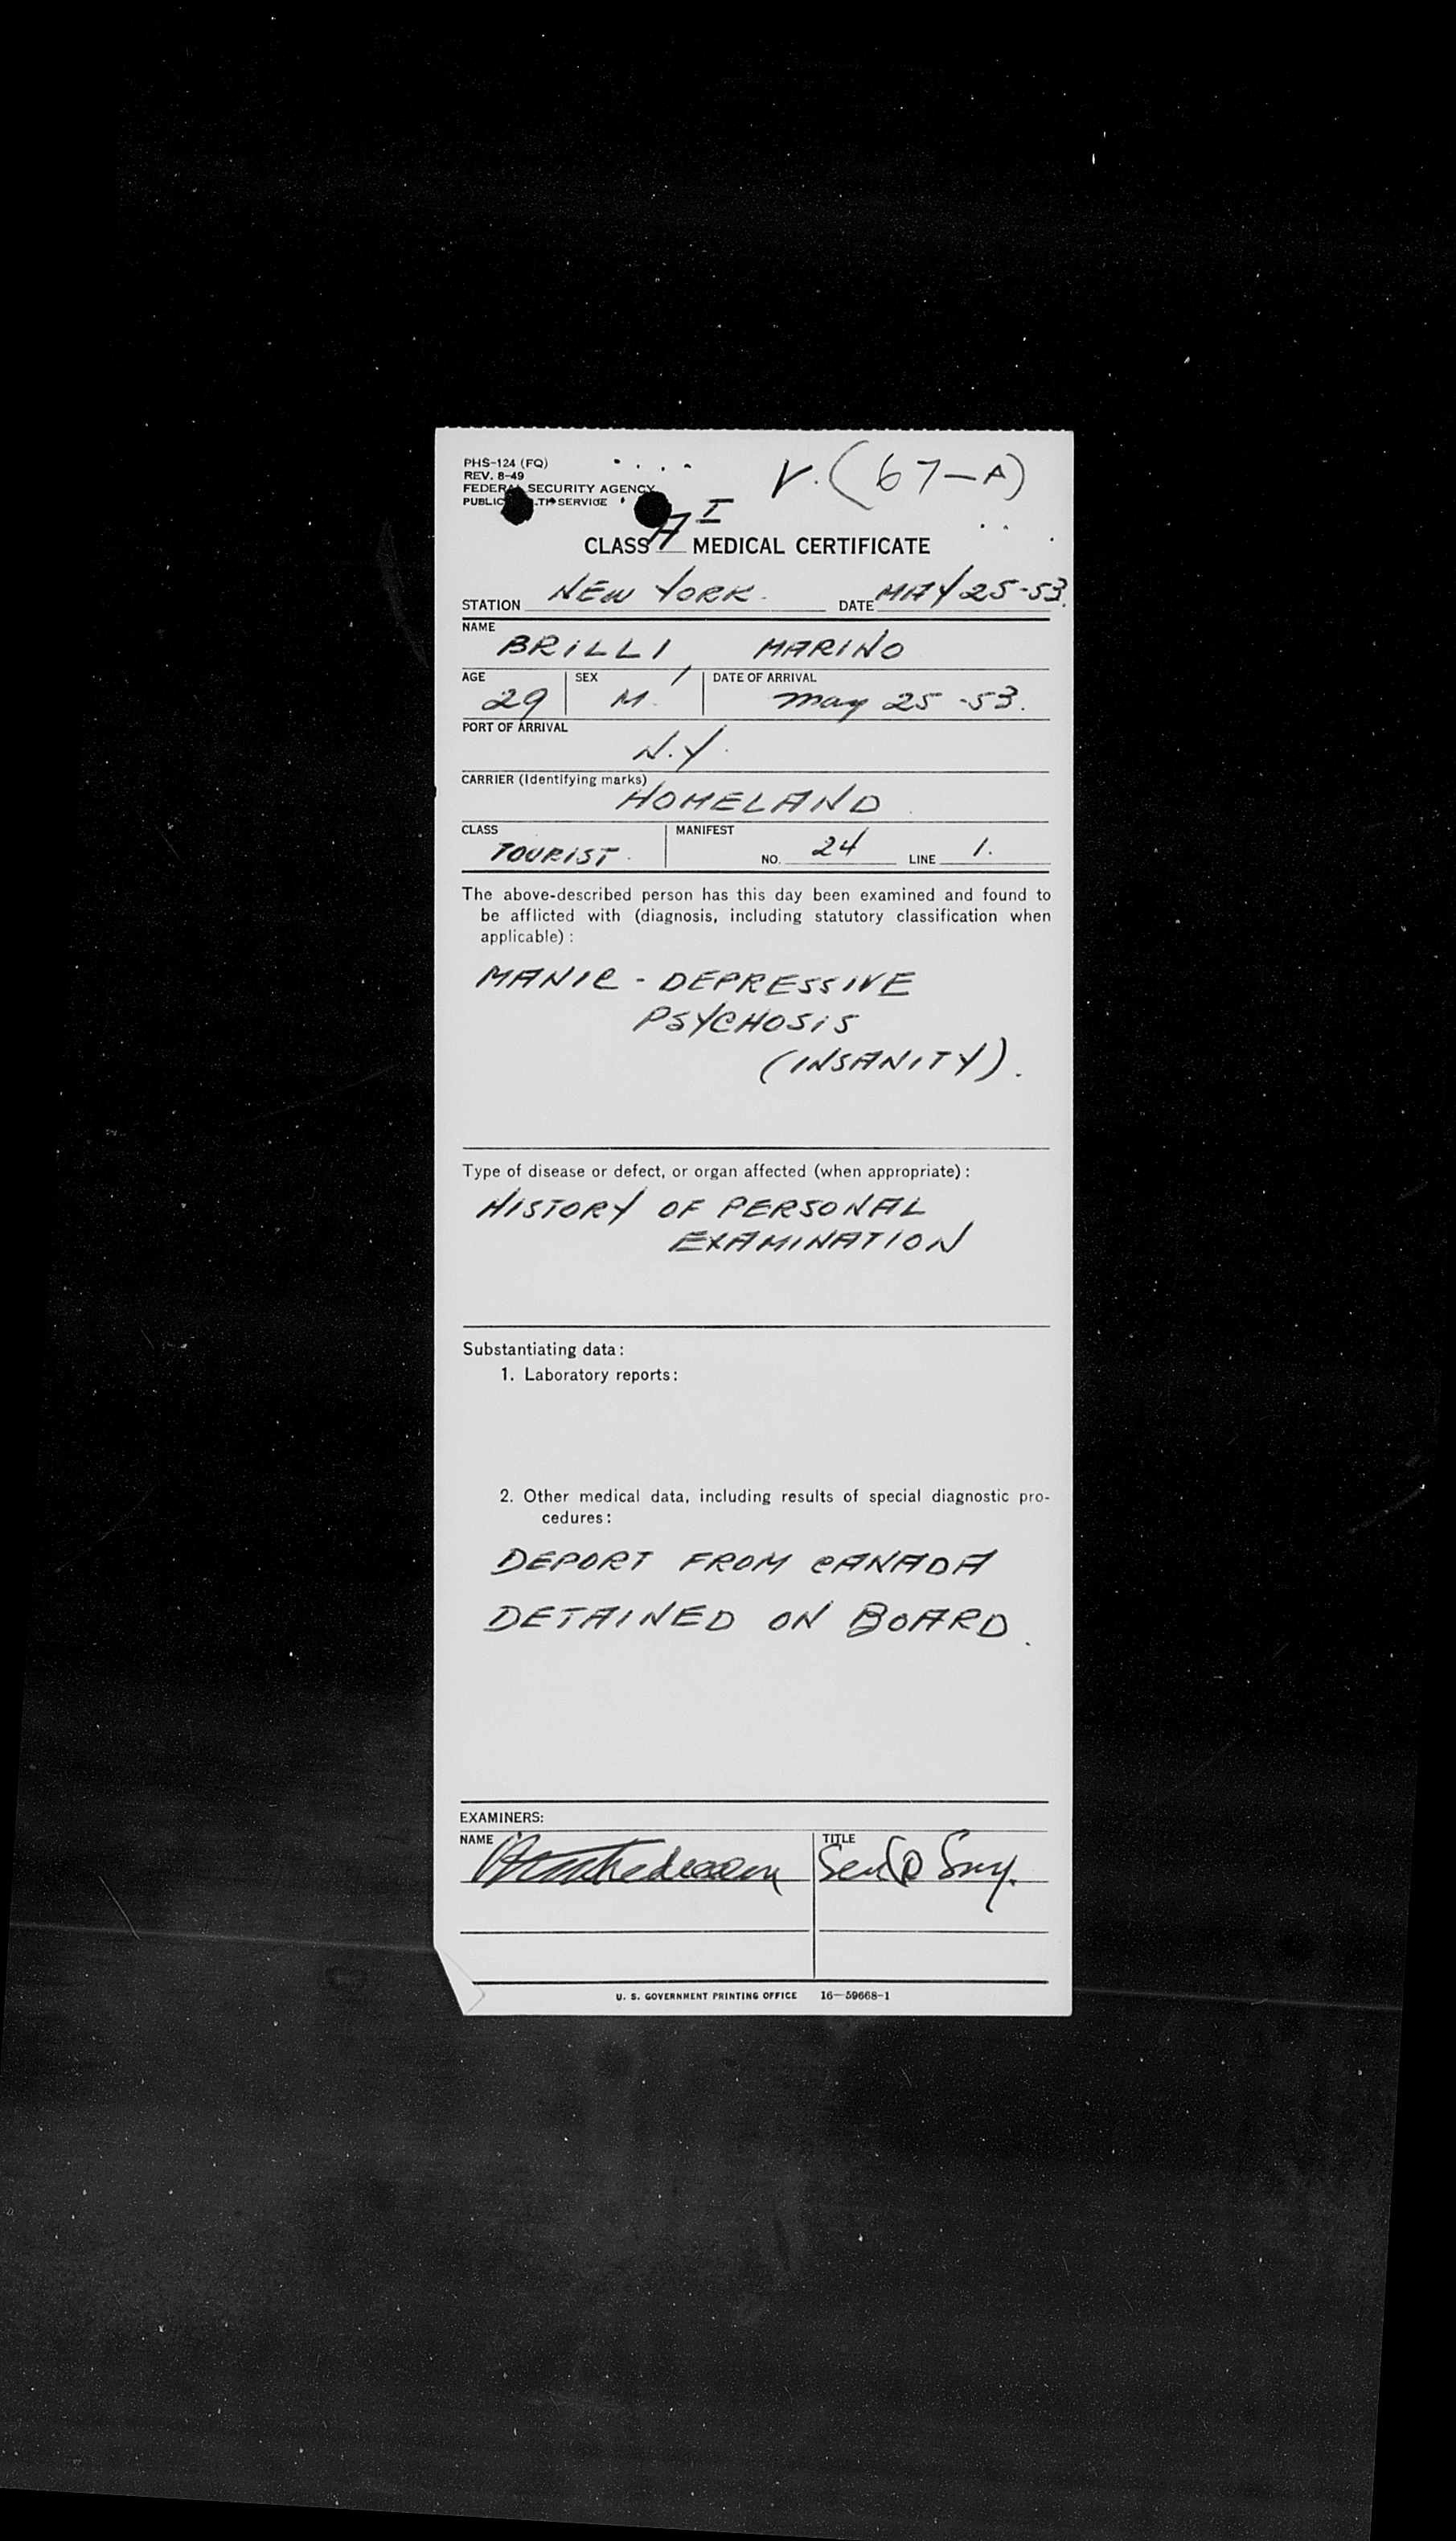 PHS-124 (FQ)
REV. 8-49
FEDERAL SECURITY AGENCY
PUBLIC SERVICE
V. (67-A)
CLASS A I MEDICAL CERTIFICATE
STATION NEW YORK. DATE MAY 25-53.
NAME
BRILLI, MARINO
AGE SEX DATE OF ARRIVAL
29 M. May 25 -53.
PORT OF ARRIVAL
N.Y.
CARRIER (Identifying marks)
HOMELAND
CLASS MANIFEST
TOURIST. NO. 24 LINE 1.
The above-described person has this day been examined and found to
be afflicted with (diagnosis, including statutory classification when
applicable):
MANIC - DEPRESSIVE
PSYCHOSIS
(INSANITY).
Type of disease or defect, or organ affected (when appropriate):
HISTORY OF PERSONAL
EXAMINATION
Substantiating data:
1. Laboratory reports:
2. Other medical data, including results of special diagnostic pro-
cedures:
DEPORT FROM CANADA
DETAINED ON BOARD.
EXAMINERS:
NAME TITLE
U. S. GOVERNMENT PRINTING OFFICE 16—59668-1